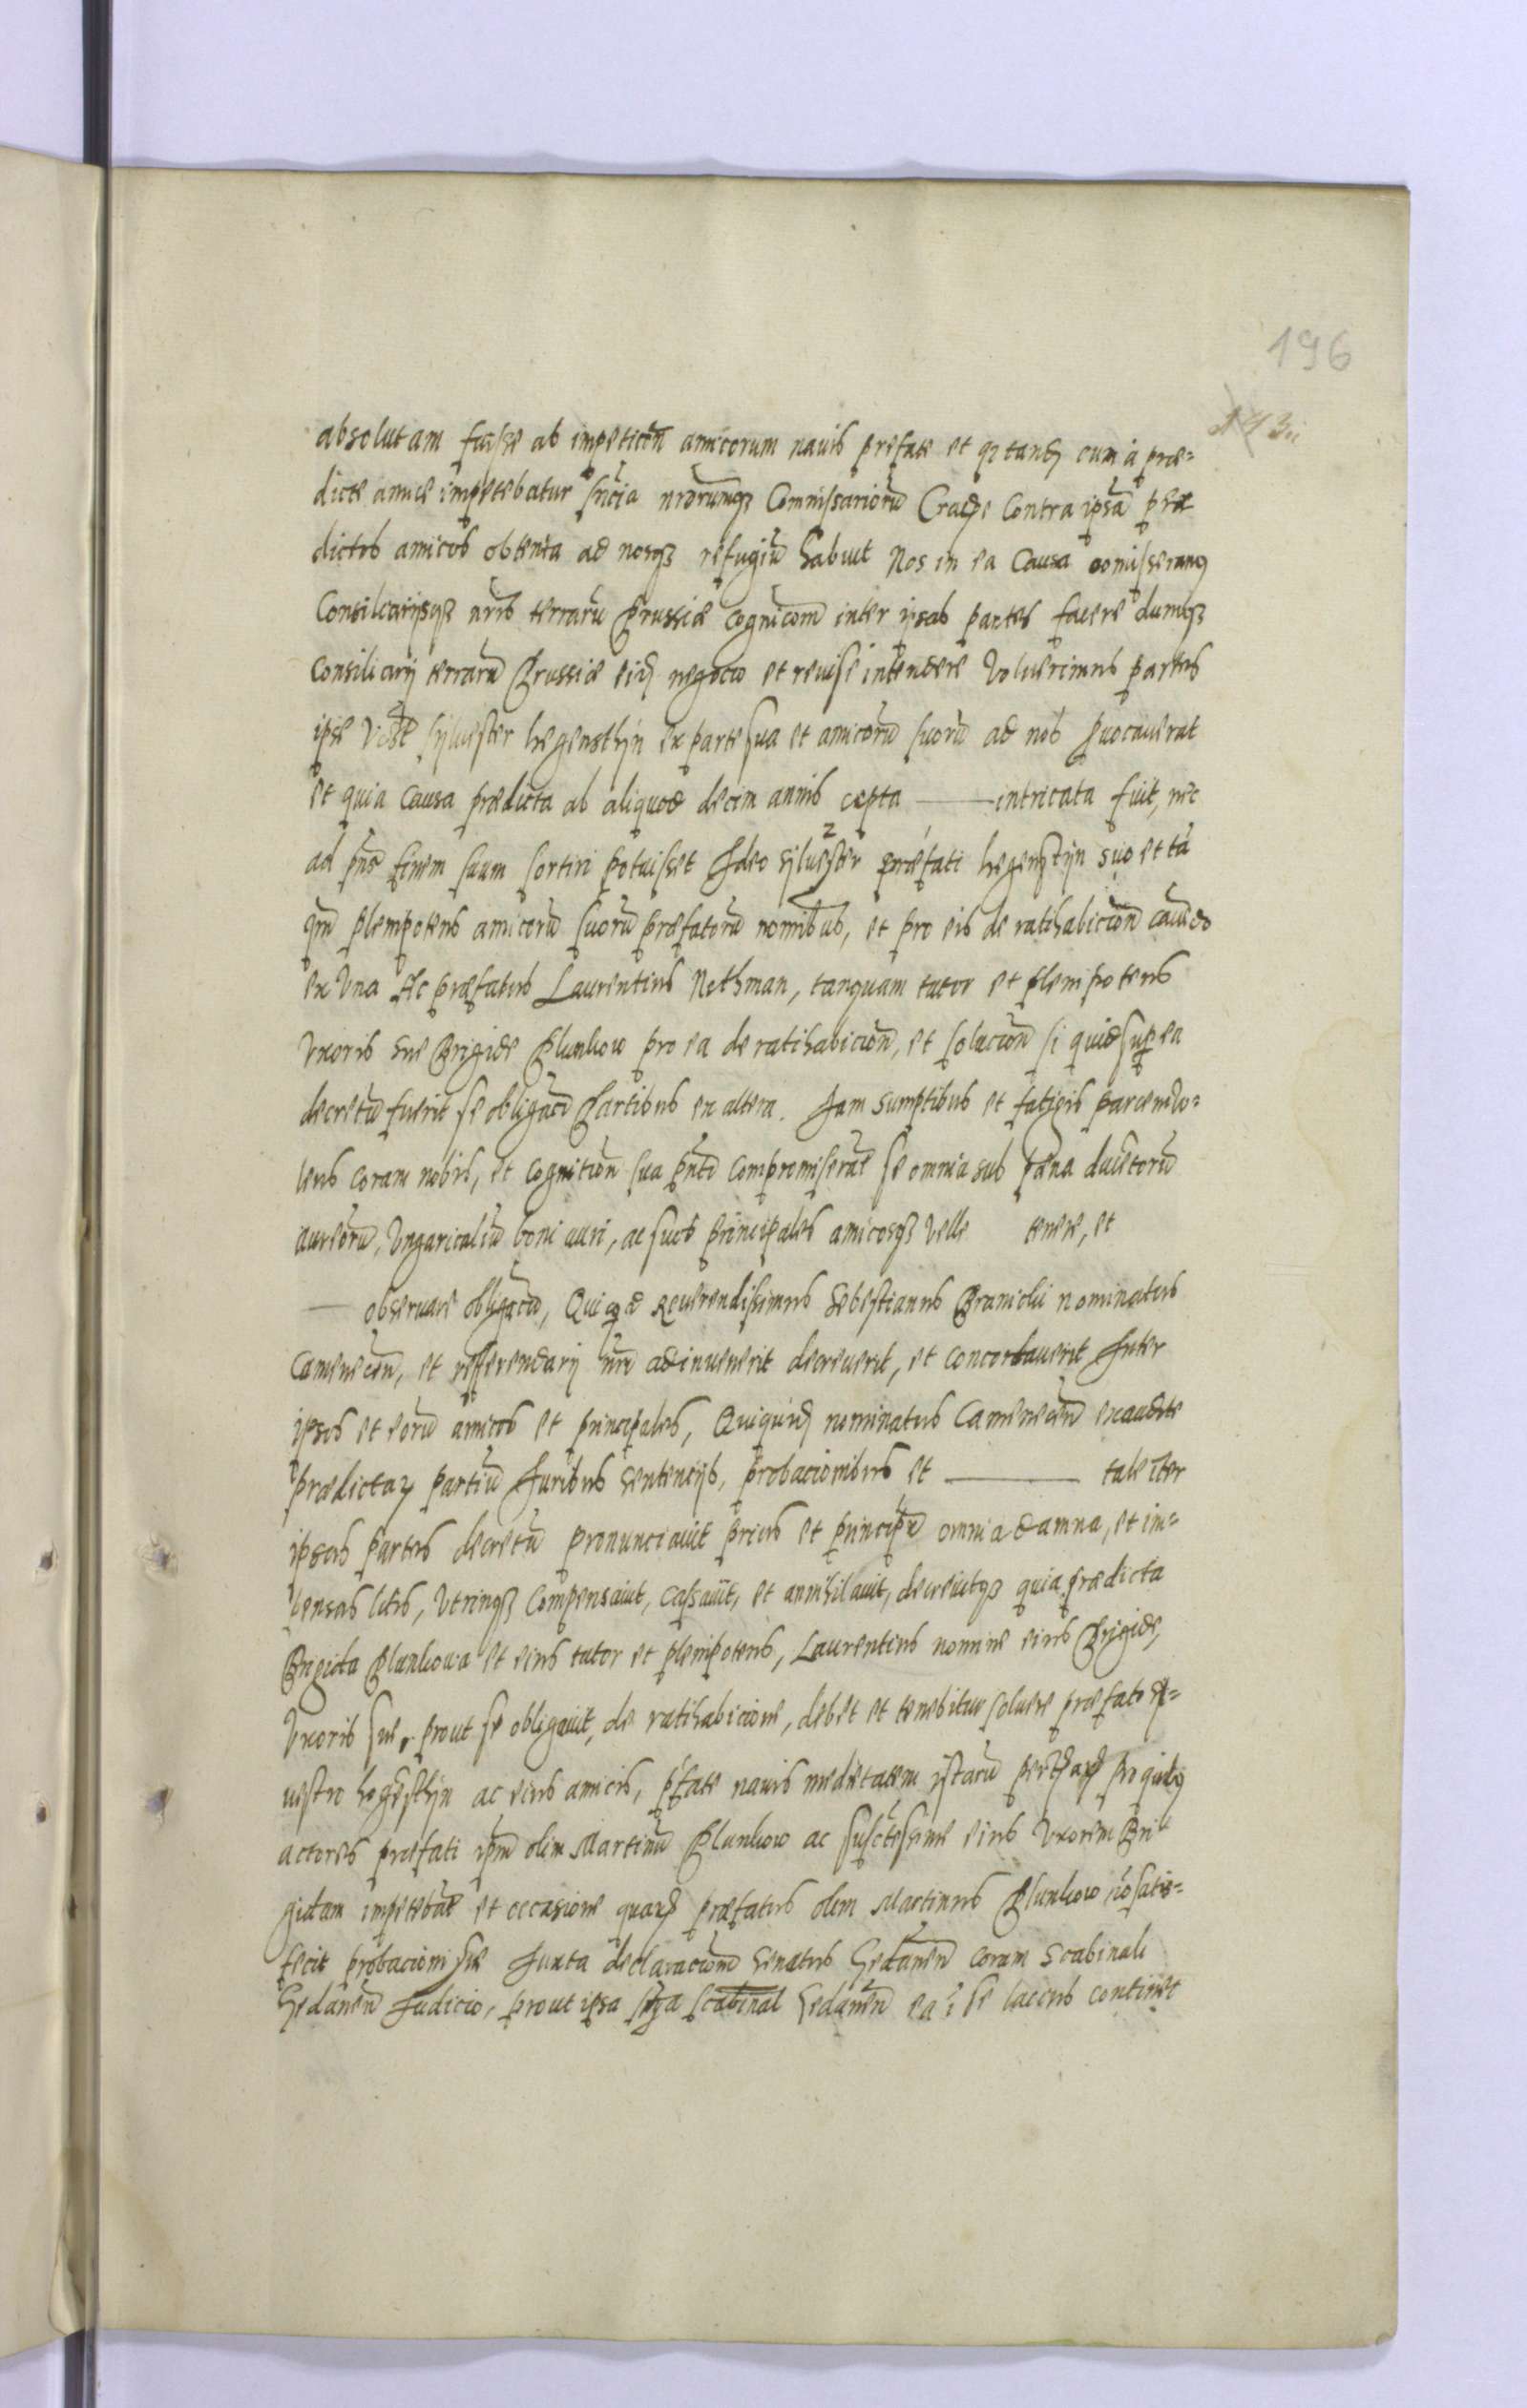 196
absolutam fuisse ab impeticōn amicorum navis prefate et q tand3 cum à præ=
dicte amice impetebatur sn̄cia nrōrumq3 Commissariorū contra ipsā præ
dictos amicos obtenta ad nosq3 refugiū habuit Nos in ea Causa comisseramq
Consiliarijsq3 nrīs terrarū Prussiæ cognicōm inter ipsas partes facere dumq3
Consiliarij terrarū Prussiæ negocio et intendere Voluerimus partes
ipse Sijluester hegensthijn ex parte sua et amicorū suorū ad nos puocauerat
et quia Causa prædicta ab aliquod decim annis cepta —— intricata fuit, nec
ad pn̄s finem suum sortiri potuisset Ideo sijluester præfati hegenstijn suo et tā
qm̄ plempotens amicorū suorū præfatorū nomībus, et pro eis de ratihabiciōn cauēdo
ex Vna Ac præfatus Laurentius Nethman, tanquam tutor et plenipotens
Vxoris sue Brigide Plunkow pro ea de ratihabiciōn, et soluciōn si quid sup ea
decretū fuerit se obligādo Partibus ex altera. Iam sumptibus et fatigis parcendo=
lens coram nobis, et cognitiōn sua compromiserāt se omnia sub pæna ducētorū
aureorū, Vngaricaliū boni auri, ac suos principales amicosq3 Velle tenere, et
—— observare obligādo, Quicqd Reuerendissimus Sebestianus Branicki nominatus
Camenecēn, et refferendarij nrī adinvenerit decreverit, et concordauerit Inter
ipsos et eorū amicos et principales, Quiquid nominatus Camenecēn exaudite
prædictar partiū Iuribus sentencijs, probacionibus et —— tale īter
ipsas partes decretū pronunciavit prius et principr omnia damna, et im=
pensas litis, Vtrinq3 Compensavit, Cassauit, et annihilavit, decreuitq3 quia prædicta
Brigida Plunkowa et eius tutor et plempotens, Laurentius nomine eius Brigide,
Vxoris sue, prout se obligavit, de ratihabicione, debet et tenebitur soluere præfato sÿl=
uestro hegēsthijn ac eius amicis, pfate navis medietatem istarū pro quibq
actores præfati ipm̄ olim Martinū Plunkow ac eius Vxorem Bri
gidam impetebāt et occasione quar præfatus olim Martinus Plunkow nō satis=
fecit probacioni sue Iuxta declaraciōm senatus Gedanēn coram scabinali
Gedanēn Iudicio, prout ipsa scabinal Gedanēn ea ī se lacius continet